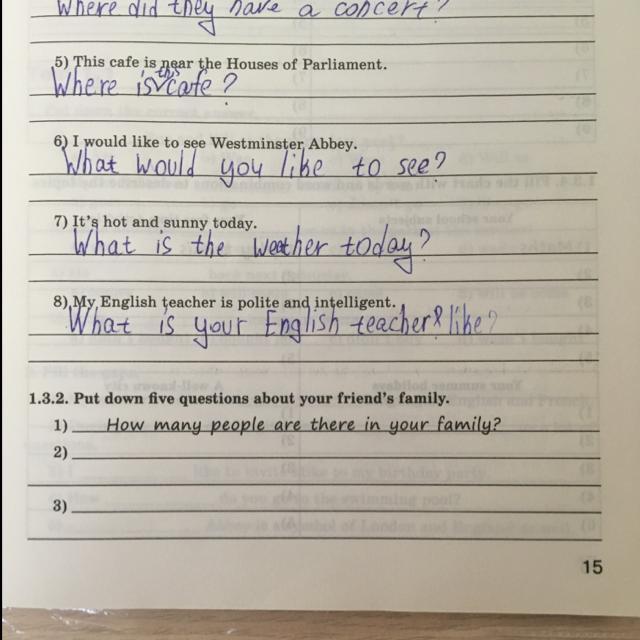 Where did they have a concert?
5) This cafe is near the Houses of Parliament.
Where is this cafe?
6) I would like to see Westminster Abbey.
What would you like to see?
7) It's hot and sunny today.
What is the weather today?
8) My English teacher is polite and intelligent.
What is your English teacher like?
1.3.2. Put down five questions about your friend's family.
1) How many people are there in your family?
2)
3)
15